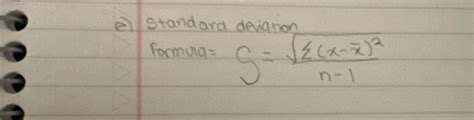 e) standard deviation
formula = S = √Σ(x-x̄)²
n-1